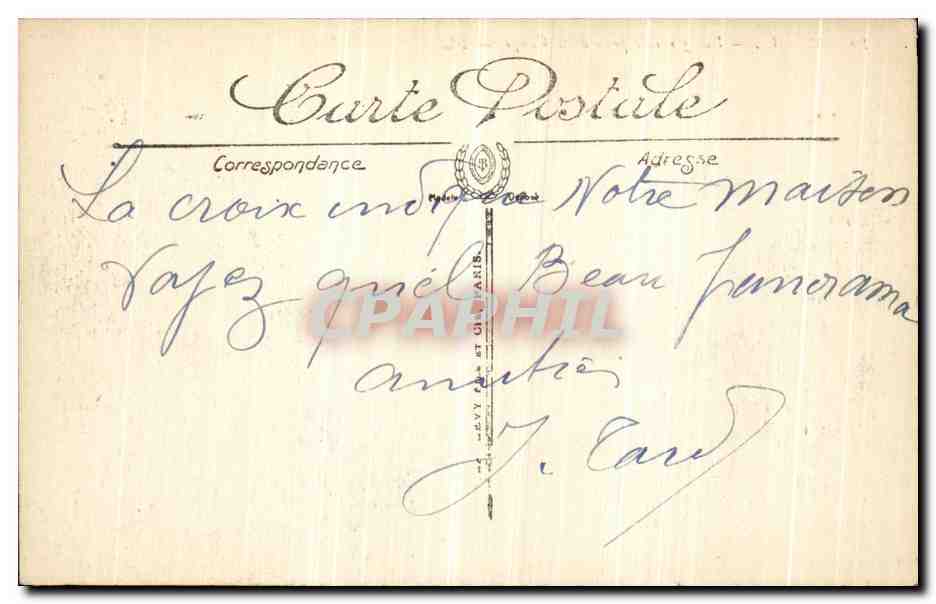 Carte Postale
Correspondance
Adresse
Modèle Déposé
La croix indique Notre maison
Voyez quel Beau panorama
CPAPHIL
amitiés
J.
LEVY FILS ET CIE, PARIS.